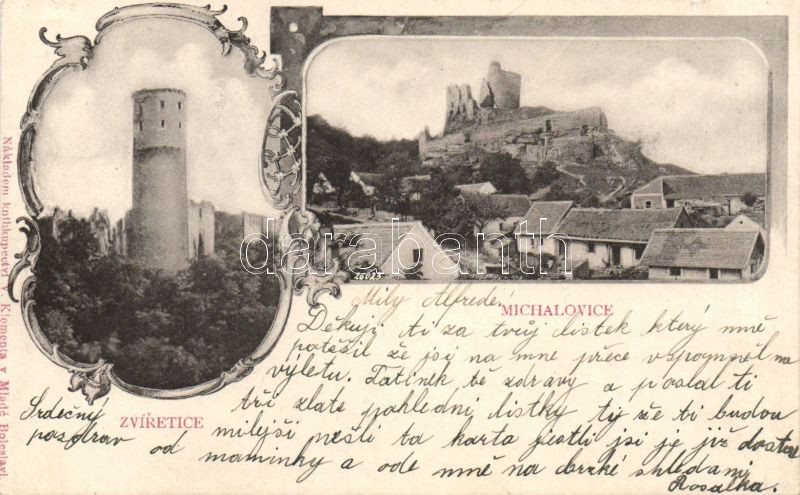 Nákladem knihkupectví V. Klementa v Mladé Boleslavi.
darabanth
26023
MICHALOVICE
ZVÍŘETICE
Milý Alfréde!
Děkuji ti za tvůj lístek který mně
potěšil že jsi na mne přece vzpomněl na
výletu. Tatínek tě zdravý a poslal ti
tři zlaté pohlední lístky ty že ti budou
milejší přišli ta karta jestli jsi je již dostal
Srdečný
pozdrav od maminky a ode mně na brzké shledání
Rosalka.